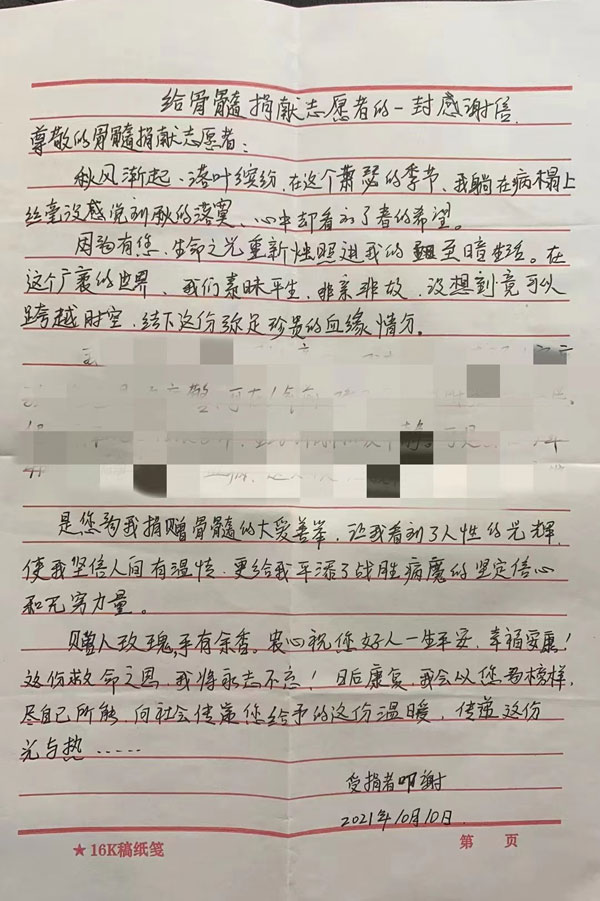 给骨髓捐献志愿者的一封感谢信
尊敬的骨髓捐献志愿者：
秋风渐起、落叶缤纷，在这个萧瑟的季节、我躺在病榻上
丝毫没感觉到秋的落寞、心中却看到了春的希望。
因为有您，生命之光重新烛照进我的至暗生活。在
这个广袤的世界、我们素昧平生，非亲非故，没想到竟可以
跨越时空，结下这份弥足珍贵的血缘情分。
是您为我捐赠骨髓的大爱善举，让我看到了人性的光辉，
使我坚信人间有温情，更给我平添了战胜病魔的坚定信心
和无穷力量。
赠人玫瑰，手有余香。衷心祝您好人一生平安，幸福安康！
这份救命之恩，我将永志不忘！日后康复，我会以您为榜样，
尽自己所能，向社会传递您给予的这份温暖，传递这份
光与热……
受捐者叩谢
2021年10月10日
★16K稿纸笺 第 页